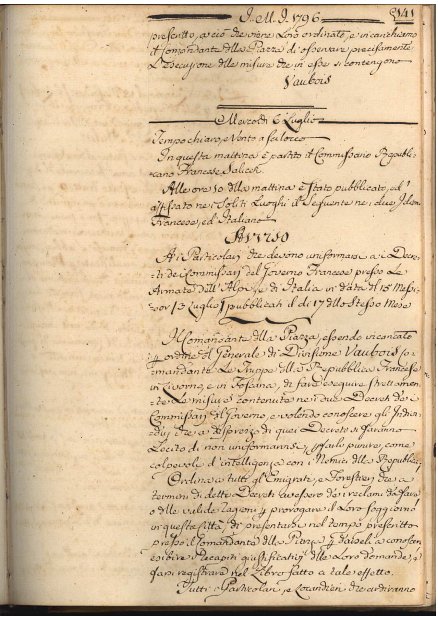 J. M. J. 1796 141
prescritto, acciò che viene Loro ordinato, e incarichiamo
il Comandante della Piazza di osservare precisamente
L'esecuzione delle misure che in esse si contengono
Vaubois
Mercoldì 6 Luglio
Tempo chiaro, e Vento a scilocco
In questa mattina è partito il Commissario Republi-
cano Francese Salicet.
Alle ore 10 della mattina è stato pubblicato, ed
affissato nei soliti Luoghi il seguente nei due Idiomi
Francese, ed Italiano
Avviso
Ai Particolari che devono uniformarsi ai Decre-
ti dei Commissarj del Governo Francese presso Le
Armate dell'Alpi, e di Italia in data il 15 Messi-
dor (3 Luglio) pubblicati il dì 17 dello stesso Mese
Il Comandante della Piazza, essendo incaricato
ordine del Generale di Divisione Vaubois Co-
mandante Le Truppe della Repubblica Francese
in Livorno, e in Toscana, di fare eseguire strettamen-
te Le misure contenute nei due Decreti dei
Commissarj del Governo, e volendo conoscere gli Indivi-
dui, che a disprezzo di quei Decreti si faranno
Lecito di non uniformarsi, farli punire, come
colpevoli d'intelligenza con i Nemici della Republica
Ordina a tutti gli Emigrati, e Forestieri che a
termini di detti Decreti avessero dei reclami da fare
o delle valide ragioni prorogare il Loro soggiorno
in questa Città, di presentarsi nel tempo prescritto
presso il Comandante della Piazza
esibire i Recapiti giustificativi delle Loro domande,
farsi registrare nel Libro fatto a tale effetto.
Tutti i Particolari, e Locandieri che ardiranno